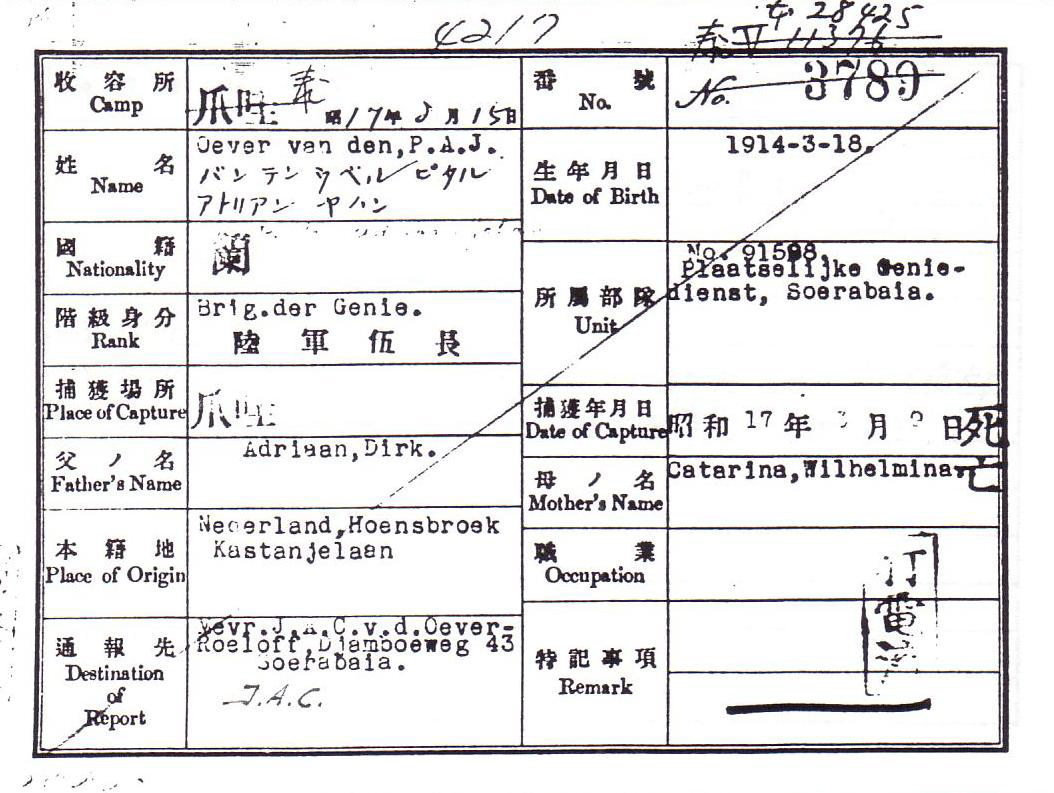 4217
28425
泰 V 11376
收容所
Camp
爪哇 泰 昭17年8月15日
番號
No.
No. 3789
姓名
Name
Oever van den,P.A.J.
バンデンウベル ピタル
アトリアン ヤハン
生年月日
Date of Birth
1914-3-18.
國籍
Nationality
蘭
階級身分
Rank
Brig.der Genie.
陸軍伍長
所屬部隊
Unit
No. 91598.
Plaatselijke Genie-
dienst, Soerabaia.
捕獲場所
Place of Capture
爪哇
捕獲年月日
Date of Capture
昭和17年 月 9日
死亡
父ノ名
Father's Name
Adriaan,Dirk.
母ノ名
Mother's Name
Catarina,Wilhelmina.
本籍地
Place of Origin
Nederland,Hoensbroek
Kastanjelaan
職業
Occupation
通報先
Destination
of
Report
Mevr.J.A.C.v.d.Oever-
Roeloff,Djamboeweg 43
Soerabaia.
J.A.C.
特記事項
Remark
電